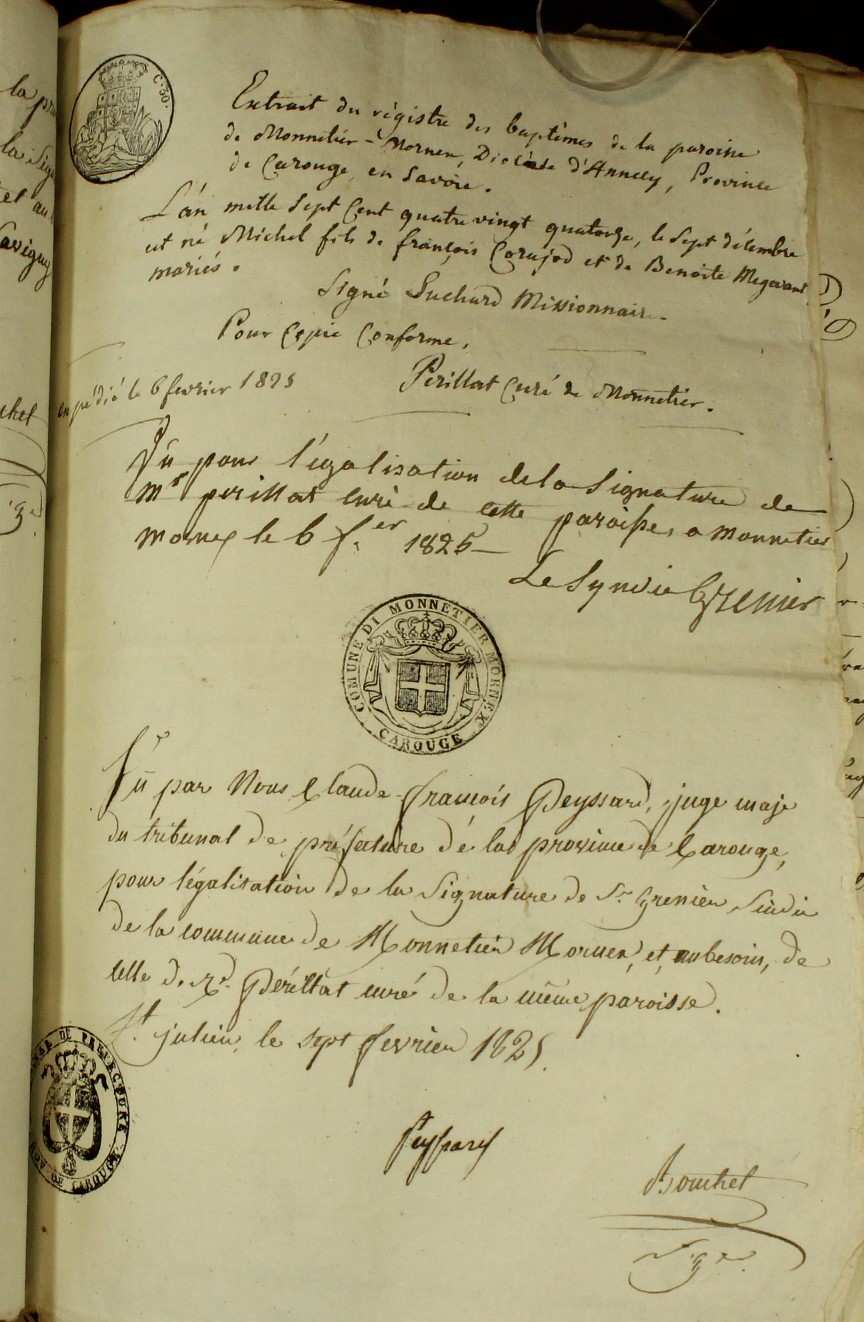 C. 30.
Extrait du régistre des baptêmes de la paroisse
de Monnetier-Mornex, Diocèse d'Annecy, Province
de Carouge, en Savoie.
L'an mille sept cent quatre vingt quatorze, le sept décembre
est né Michel fils de françois Corajod et de Benoite Megevand
mariés.
Signé Suchard Missionnaire
Pour Copie Conforme,
expédié le 6 fevrier 1825
Périllat Curé de Monnetier.
Vu pour légalisation de la Signature de
Mr perillat curé de cette paroisse, a monnetier
mornex le 6 f.er 1825
Le Syndic Grenier
COMUNE DI MONNETIER MORNEX
CAROUGE
Vu par Nous Claude françois Peyssard, juge maje
du tribunal de préfature dé la province de Carouge,
pour légalisation de la Signature de Sr Grenier Sindic
de la commune de Monnetier Mornex, et, au besoin, de
celle de Rd. Périllat curé de la même paroisse.
St. julien, le sept fevrier 1825.
DE PREFECTURE
DE CAROUGE
Peyssard
Bouchet